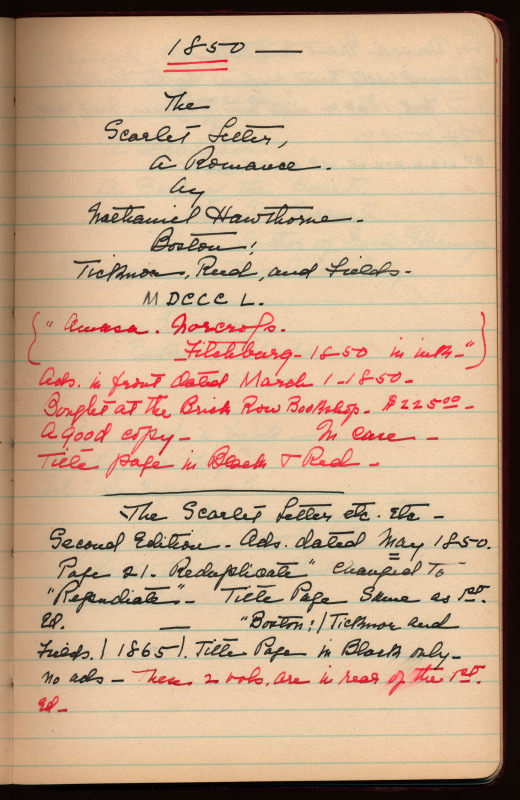 1850 —
The
Scarlet Letter,
A Romance.
By
Nathaniel Hawthorne.
Boston:
Ticknor, Reed, and Fields.
MDCCC L.
"Amasa. Norcross.
Fitchburg - 1850 in ink -"
Ads. in front dated March 1 - 1850 -
Bought at the Brick Row Bookshop. $225.00 -
A good copy - In case -
Title page in Black & Red -
The Scarlet Letter etc. Etc -
Second Edition - Ads. dated May 1850.
Page 21 - Reduplicate" changed to
"Repudiate" - Title Page Same as 1st.
Ed. — "Boston: / Ticknor and
Fields. / 1865 /. Title Page in Black only -
no ads - These 2 vols. are in rear of the 1st.
Ed -